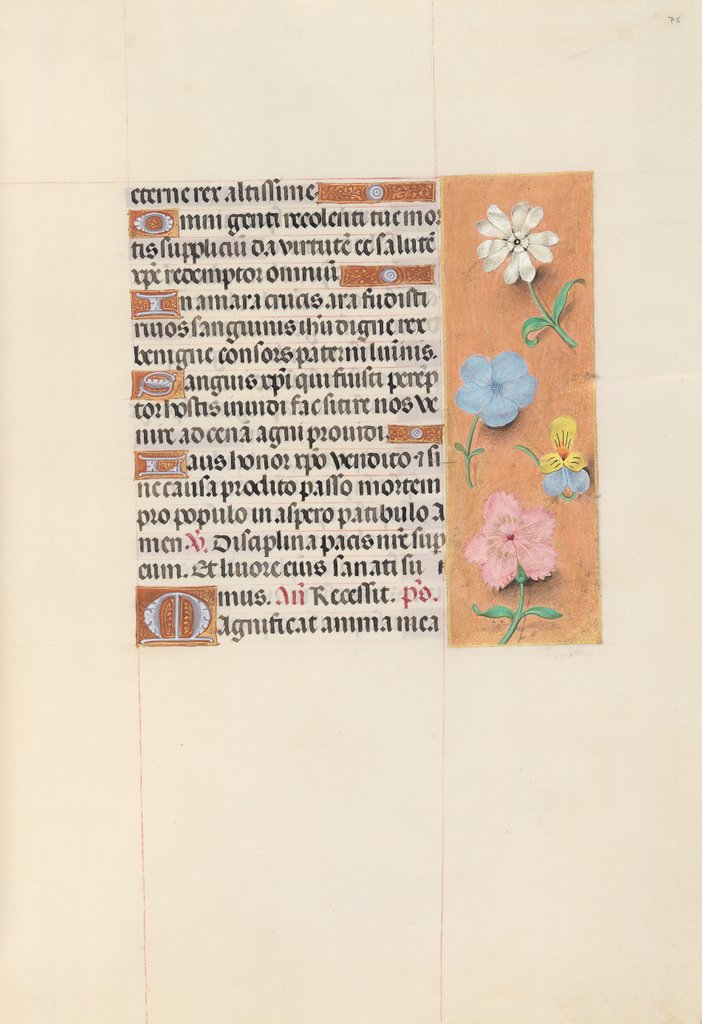 75
eterne rex altissime
Omni genti recolenti tue mor
tis suppliciū da virtutē et salutē
xp̄e redemptor omniuʒ
In amara crucis ara fudisti
rivos sanguinis ihū digne rex
benigne consors paterni luīnis.
Sanguis xp̄i qui fuisti perēp
tor hostis invidi fac sitire nos ve
nire ad cenā agni providi.
Laus honor xp̄o vendito ⁊ si
ne causa prodito passo mortem
pro populo in aspero patibulo A
men. V̄. Disciplina pacis nr̄e sup
eum. Et livore eius sanati su
mus. Añ Recessit. ps̄.
Magnificat anima mea